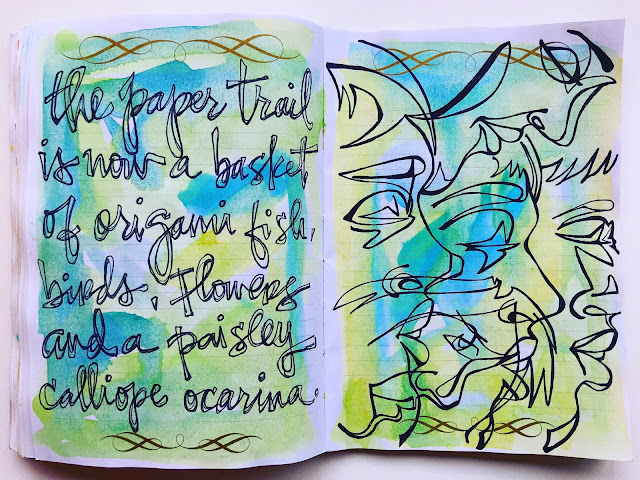 the paper trail
is now a basket
of origami fish,
birds, flowers
and a paisley
calliope ocarina.